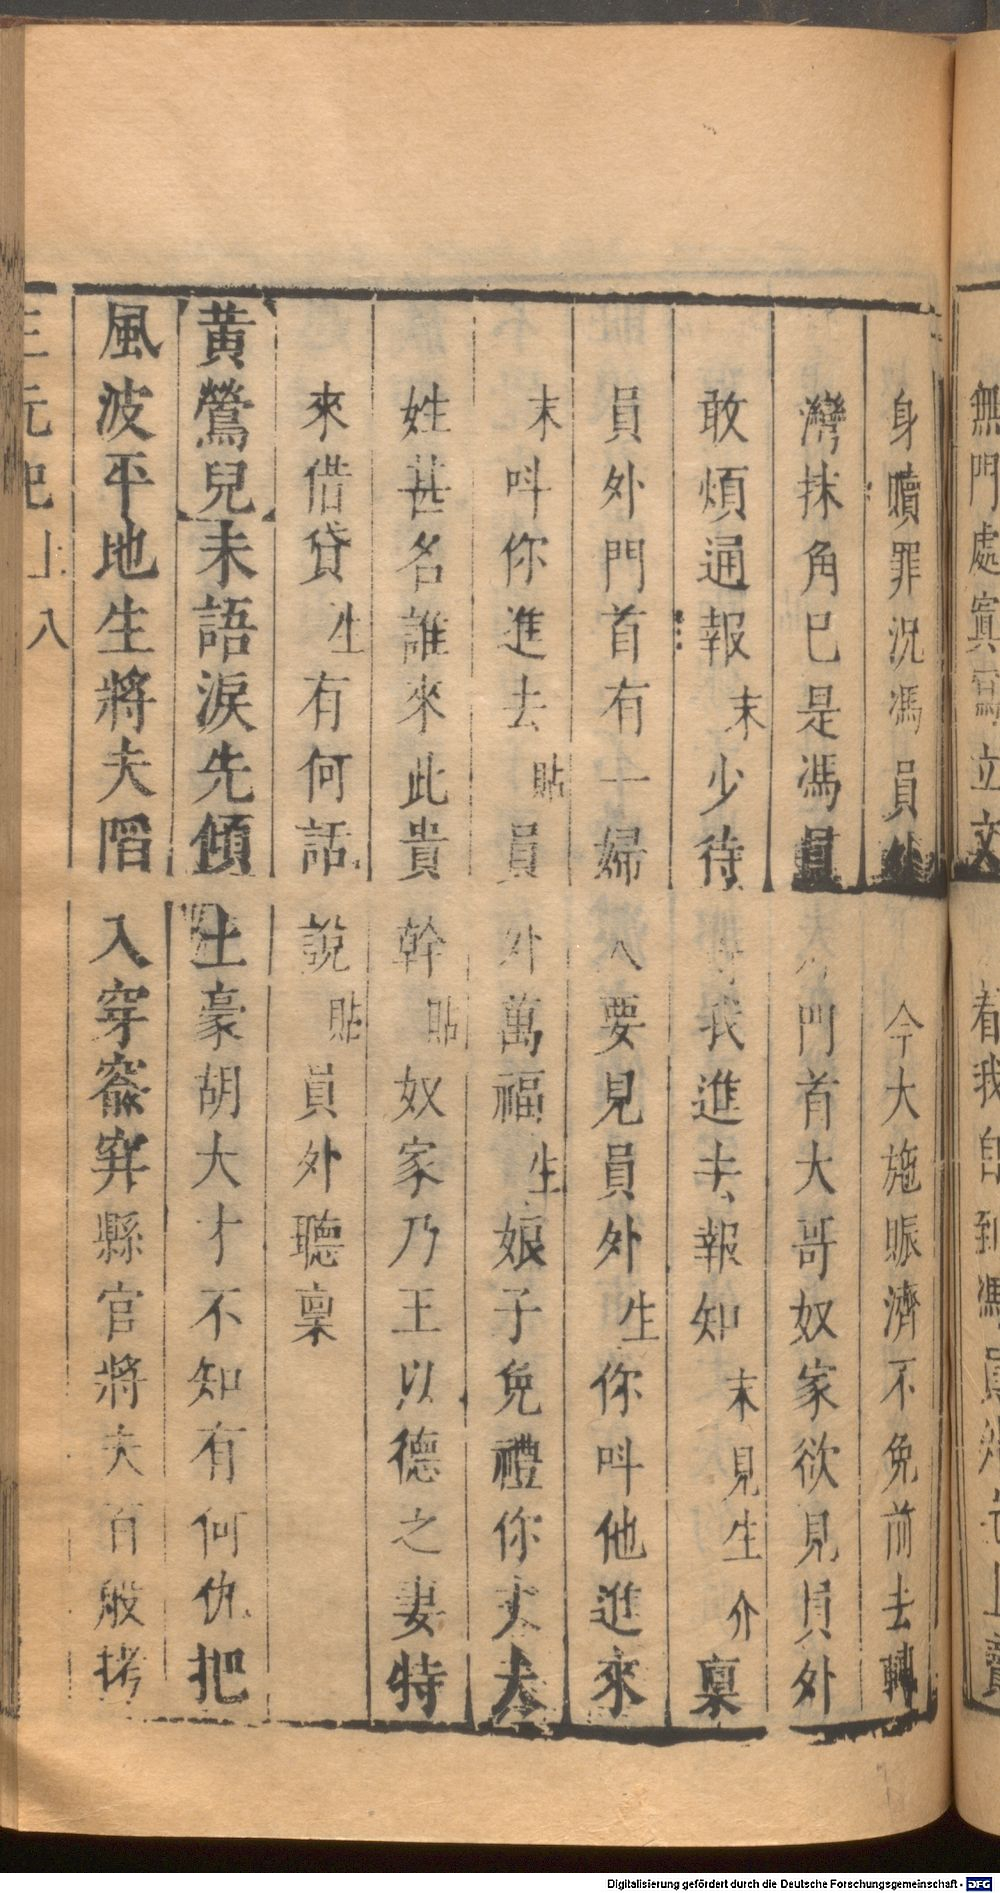 無門處寘寫立文 看我
身贖罪況馮員外今大施賑濟不免前去轉
灣抹角已是馮員外門首大哥奴家欲見員外
敢煩通報末少待待我進去報知末見生介稟
員外門首有一婦人要見員外生你呌他進來
末呌你進去貼員外萬福生娘子免禮你丈夫
姓甚名誰來此貴幹貼奴家乃王以德之妻特
來借貸生有何話說貼員外聽稟
黃鶯兒未語淚先傾土豪胡大才不知有何仇把
風波平地生將夫䧟入穿窬穽縣官將夫百般拷
三元記 上 八
Digitalisierung gefördert durch die Deutsche Forschungsgemeinschaft - DFG